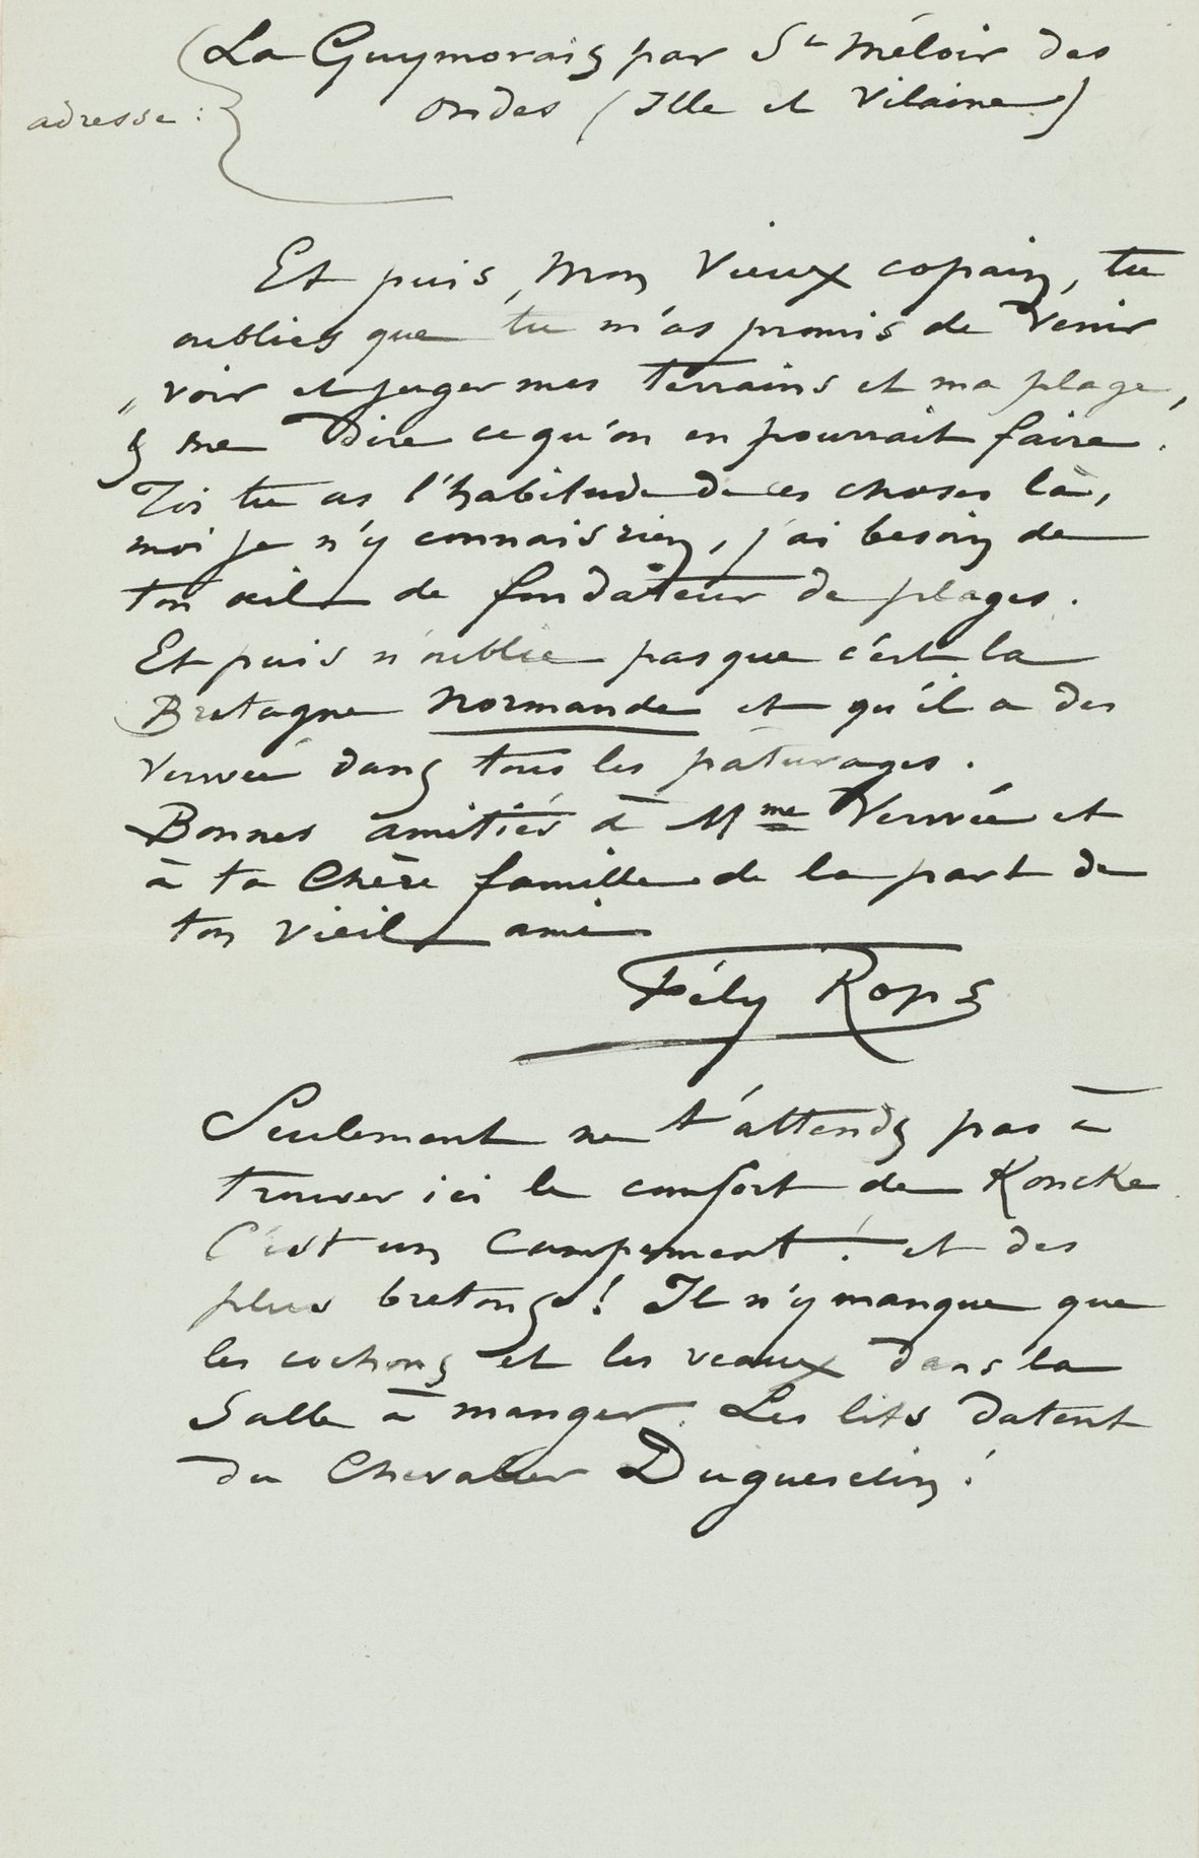 (La Guymorais par St Méloir des
adresse : ondes (Ille et Vilaine)
Et puis, Mon Vieux copain, tu
oublies que tu m'as promis de Venir
voir et juger mes terrains et ma plage,
& me Dire ce qu'on en pourrait faire.
Toi tu as l'habitude de ces choses là,
moi je n'y connais rien, j'ai besoin de
ton œil de fondateur de plages.
Et puis n'oublie pas que c'est la
Bretagne normande et qu'il a des
Verwée dans tous les pâturages.
Bonnes amitiés à Mme Verwée et
à ta Chère famille de la part de
ton vieil ami
Fély Rops
Seulement ne t'attends pas à
trouver ici le confort de Koncke
C'est un Campement ! et des
plus bretons ! Il n'y manque que
les cochons et les veaux dans la
Salle à manger. Les lits datent
du Chevalier Duguesclin !